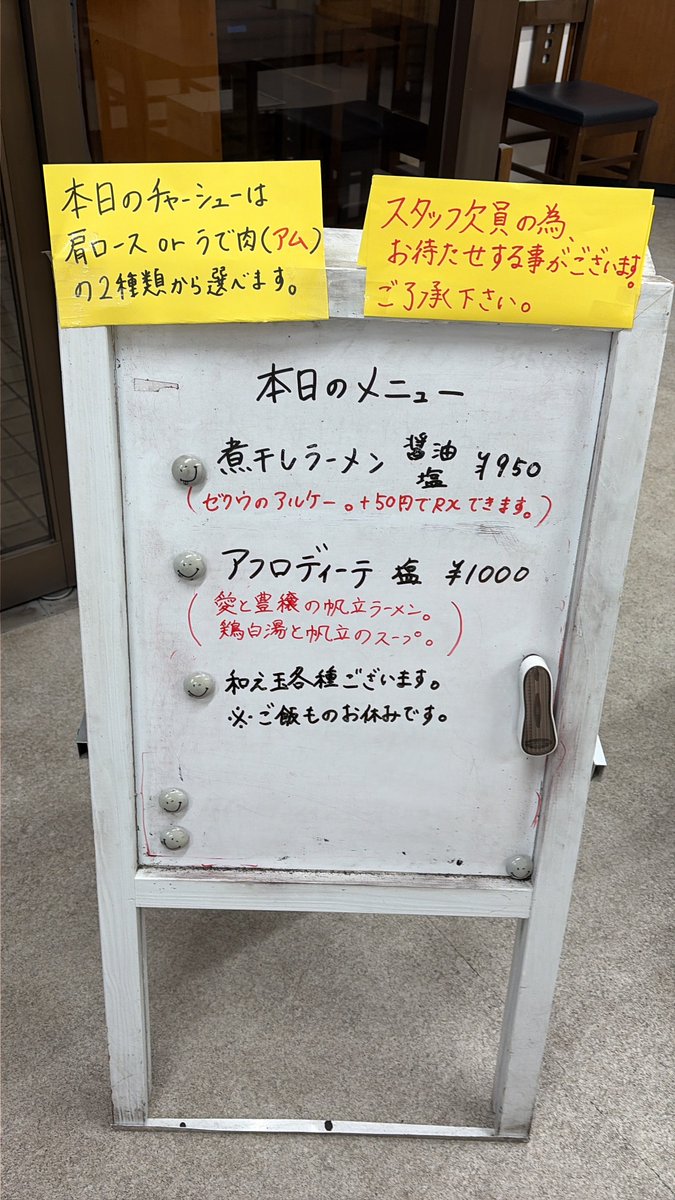 本日のチャーシューは
肩ロース or うで肉(アム)
の2種類から選べます。
スタッフ欠員の為、
お待たせする事がございます。
ご了承下さい。
本日のメニュー
煮干しラーメン 醤油 塩 ¥950
(ゼクウのアルケー。+50円でRXできます。)
アフロディーテ 塩 ¥1000
(愛と豊穣の帆立ラーメン。
鶏白湯と帆立のスープ。)
和え玉各種ございます。
※ご飯ものお休みです。